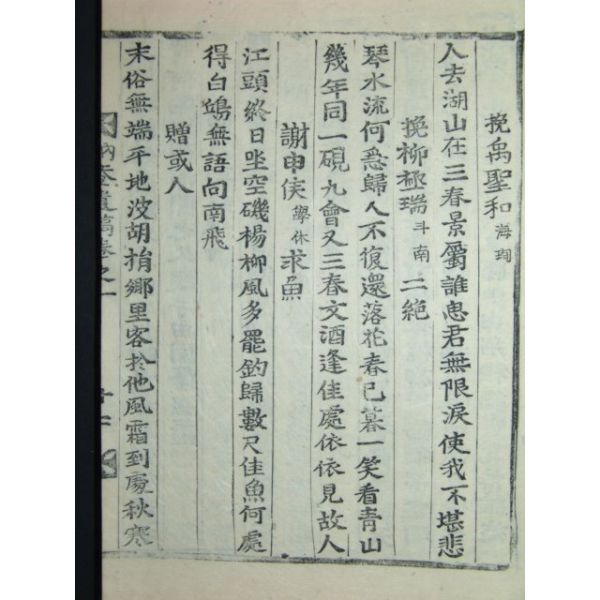 挽禹聖和 海珣
人去湖山在三春景屬誰思君無限淚使我不堪悲
挽柳極瑞 斗南 二絶
琴水流何急歸人不復還落花春已暮一笑看青山
幾年同一硯九會又三春文酒逢佳處依依見故人
謝申矦 學休 求魚
江頭終日坐空磯楊柳風多罷釣歸數尺佳魚何處
得白鷗無語向南飛
贈或人
末俗無端平地波胡捎鄉里客於他風霜到處秋寒
遺稿卷之一